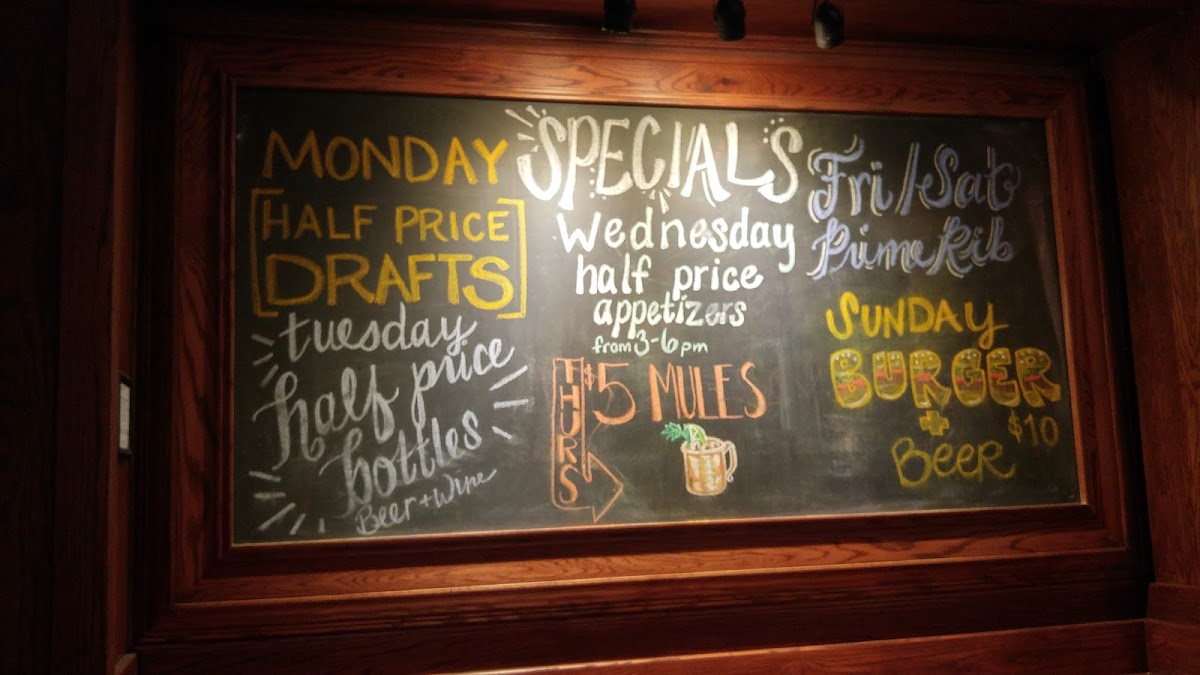 SPECIALS
MONDAY
HALF PRICE
DRAFTS
tuesday
half price
bottles
Beer + Wine
Wednesday
half price
appetizers
from 3-6pm
THURS
$5 MULES
Fri/Sat
Prime Rib
SUNDAY
BURGER
+
BEER
$10